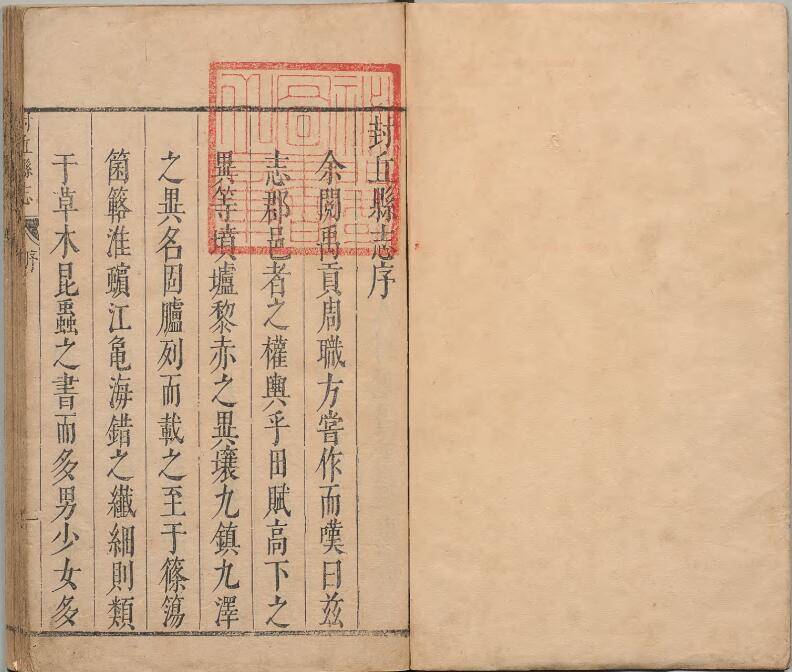 封丘縣志序
余閱禹貢周職方嘗作而嘆曰兹
志郡邑者之權輿乎田賦高下之
異等墳壚黎赤之異壤九鎮九澤
之異名固臚列而載之至于篠簜
箘簵淮蠙江龜海錯之纖細則類
于草木昆蟲之書而多男少女多
封丘縣志
序
一